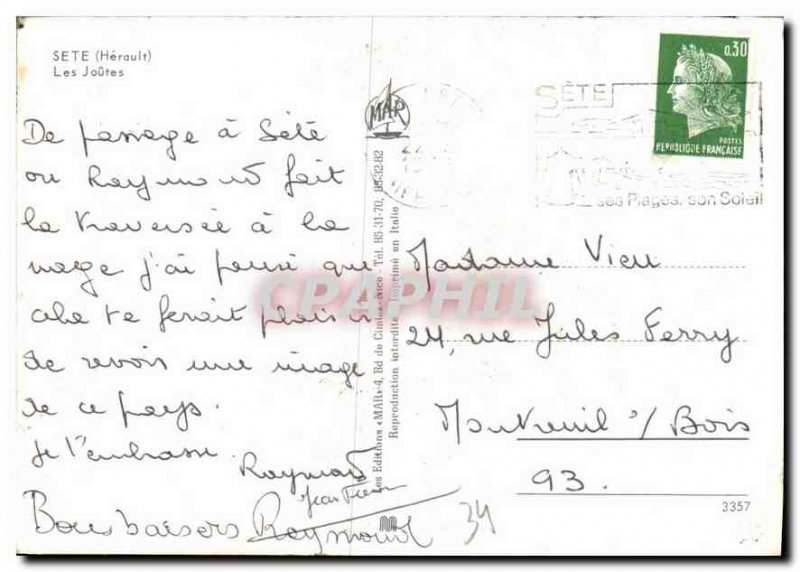 SETE (Hérault)
Les Joûtes
De passage à Sète
ou Raymond fait
la traversée à la
nage j'ai pensé que
cela te ferait plaisir
de revoir une image
de ce pays.
Je t'embrasse
Raymond
Jean
Bons baisers Raymond
34
MAR
Les Editions «MAR» 4, Bd de Cimiez - Nice - Tél. 85 31-70, 85-32-82
Reproduction interdite Imprimé en Italie
CPAPHIL
SÈTE
ses Plages, son Soleil
0,30
POSTES
REPUBLIQUE FRANÇAISE
Madame Vieu
24, rue Jules Ferry
Montreuil s/ Bois
93.
3357